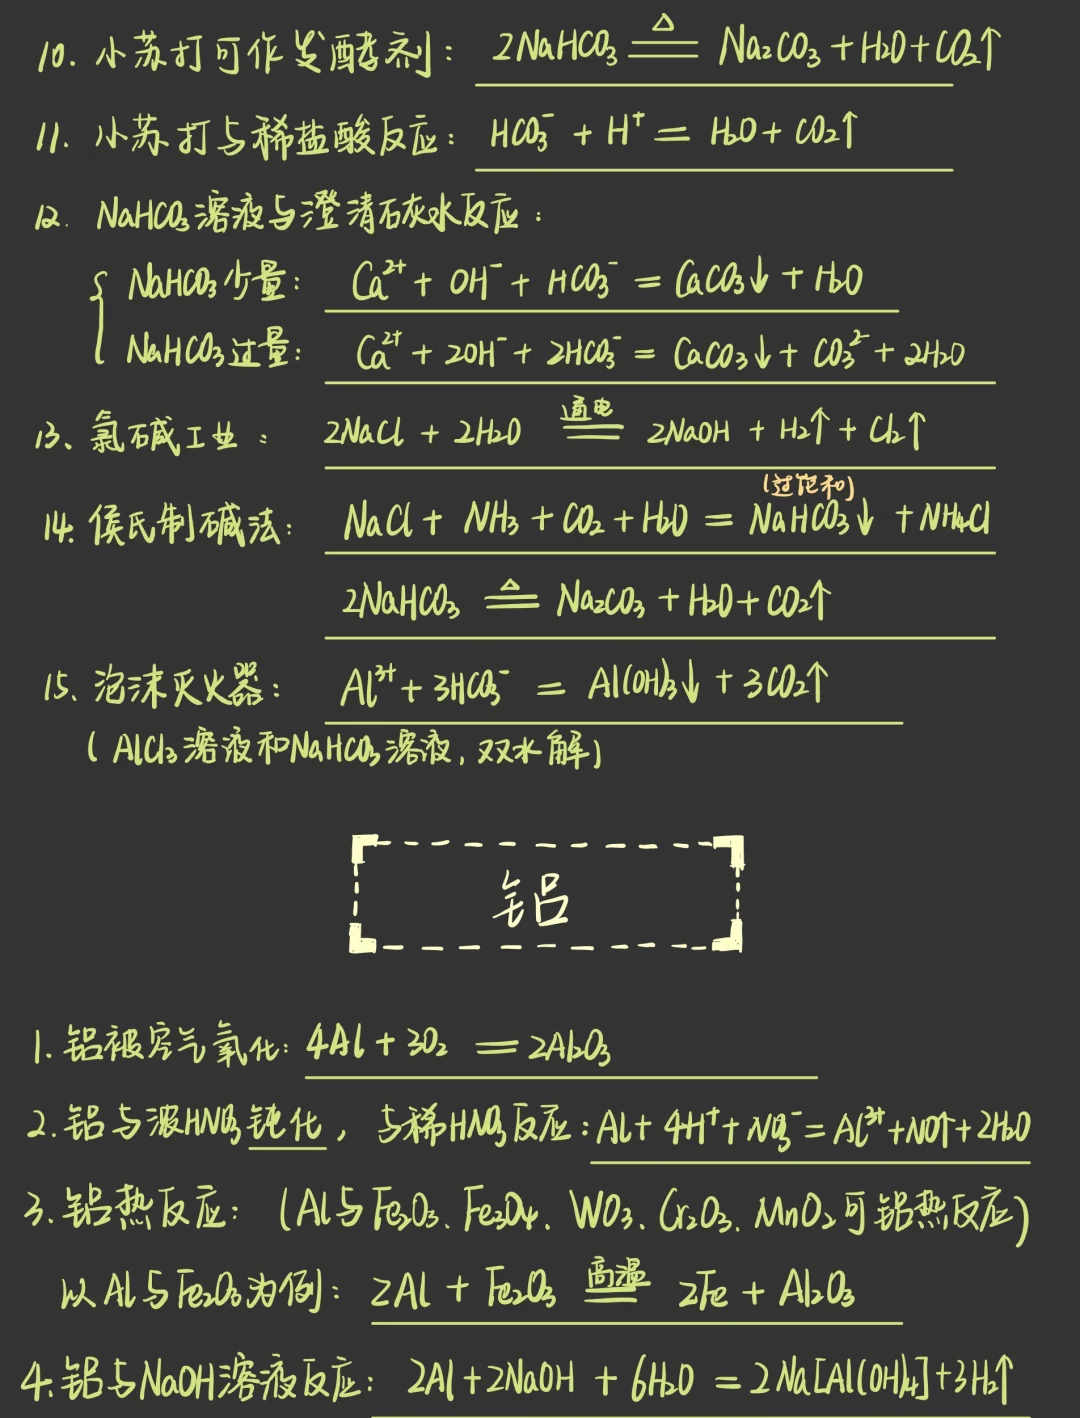 10. 小苏打可作发酵剂: 2NaHCO₃ ≜ Na₂CO₃ + H₂O + CO₂↑
11. 小苏打与稀盐酸反应: HCO₃⁻ + H⁺ = H₂O + CO₂↑
12. NaHCO₃溶液与澄清石灰水反应:
{ NaHCO₃少量: Ca²⁺ + OH⁻ + HCO₃⁻ = CaCO₃↓ + H₂O
NaHCO₃过量: Ca²⁺ + 2OH⁻ + 2HCO₃⁻ = CaCO₃↓ + CO₃²⁻ + 2H₂O
13、氯碱工业: 2NaCl + 2H₂O 通电 == 2NaOH + H₂↑ + Cl₂↑
(过饱和)
14. 侯氏制碱法: NaCl + NH₃ + CO₂ + H₂O = NaHCO₃↓ + NH₄Cl
2NaHCO₃ ≜ Na₂CO₃ + H₂O + CO₂↑
15、泡沫灭火器: Al³⁺ + 3HCO₃⁻ = Al(OH)₃↓ + 3CO₂↑
(AlCl₃溶液和NaHCO₃溶液, 双水解)
铝
1. 铝被空气氧化: 4Al + 3O₂ = 2Al₂O₃
2. 铝与浓HNO₃钝化, 与稀HNO₃反应: Al + 4H⁺ + NO₃⁻ = Al³⁺ + NO↑ + 2H₂O
3. 铝热反应: (Al与Fe₂O₃、Fe₃O₄、WO₃、Cr₂O₃、MnO₂可铝热反应)
以Al与Fe₂O₃为例: 2Al + Fe₂O₃ 高温 == 2Fe + Al₂O₃
4. 铝与NaOH溶液反应: 2Al + 2NaOH + 6H₂O = 2Na[Al(OH)₄] + 3H₂↑